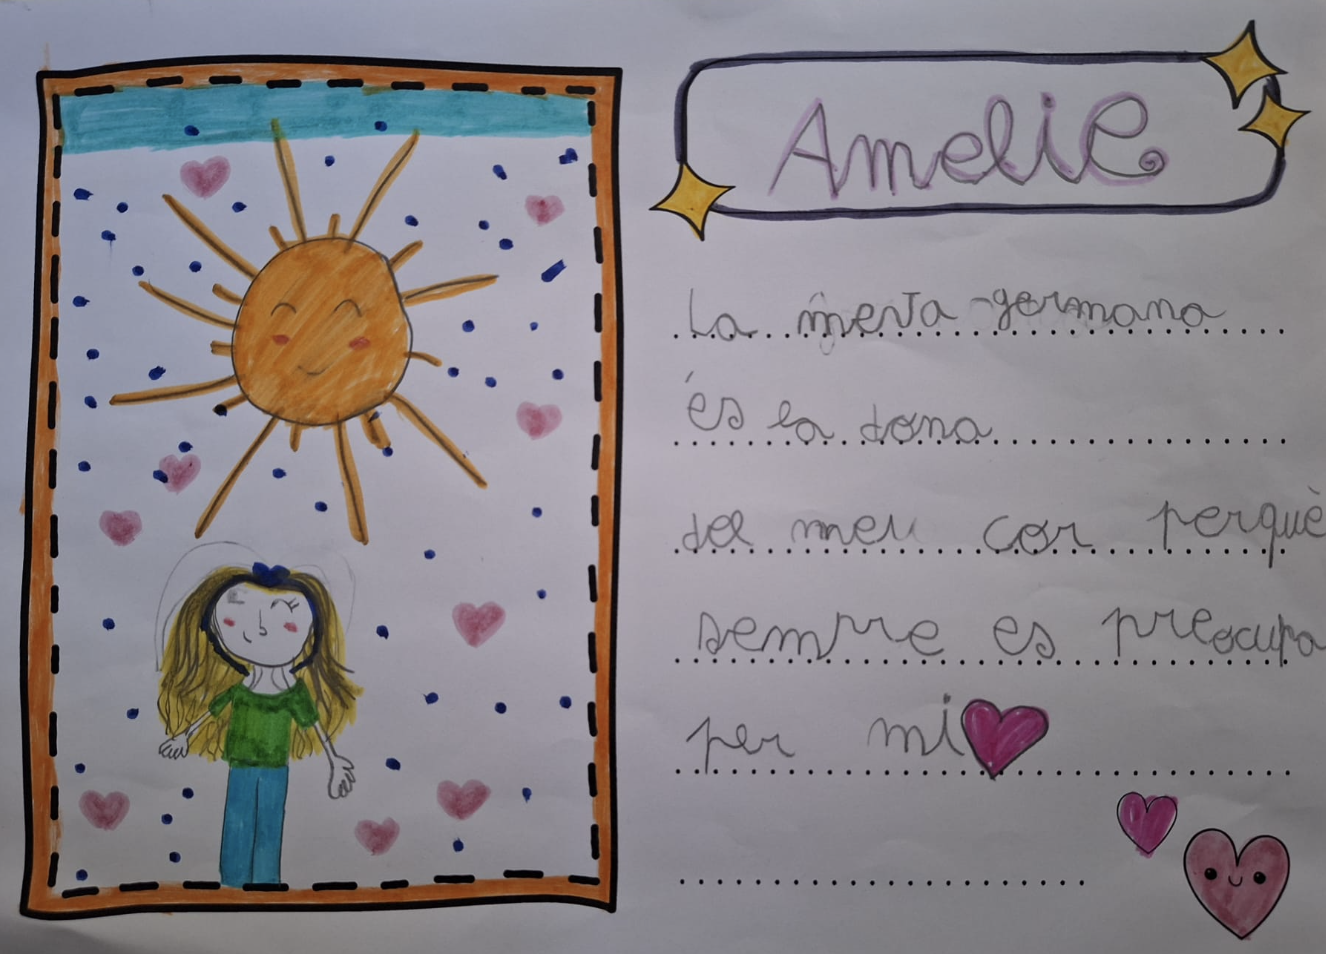 Amelie
La meva germana
és la dona
del meu cor perquè
sempre es preocupa
per mi